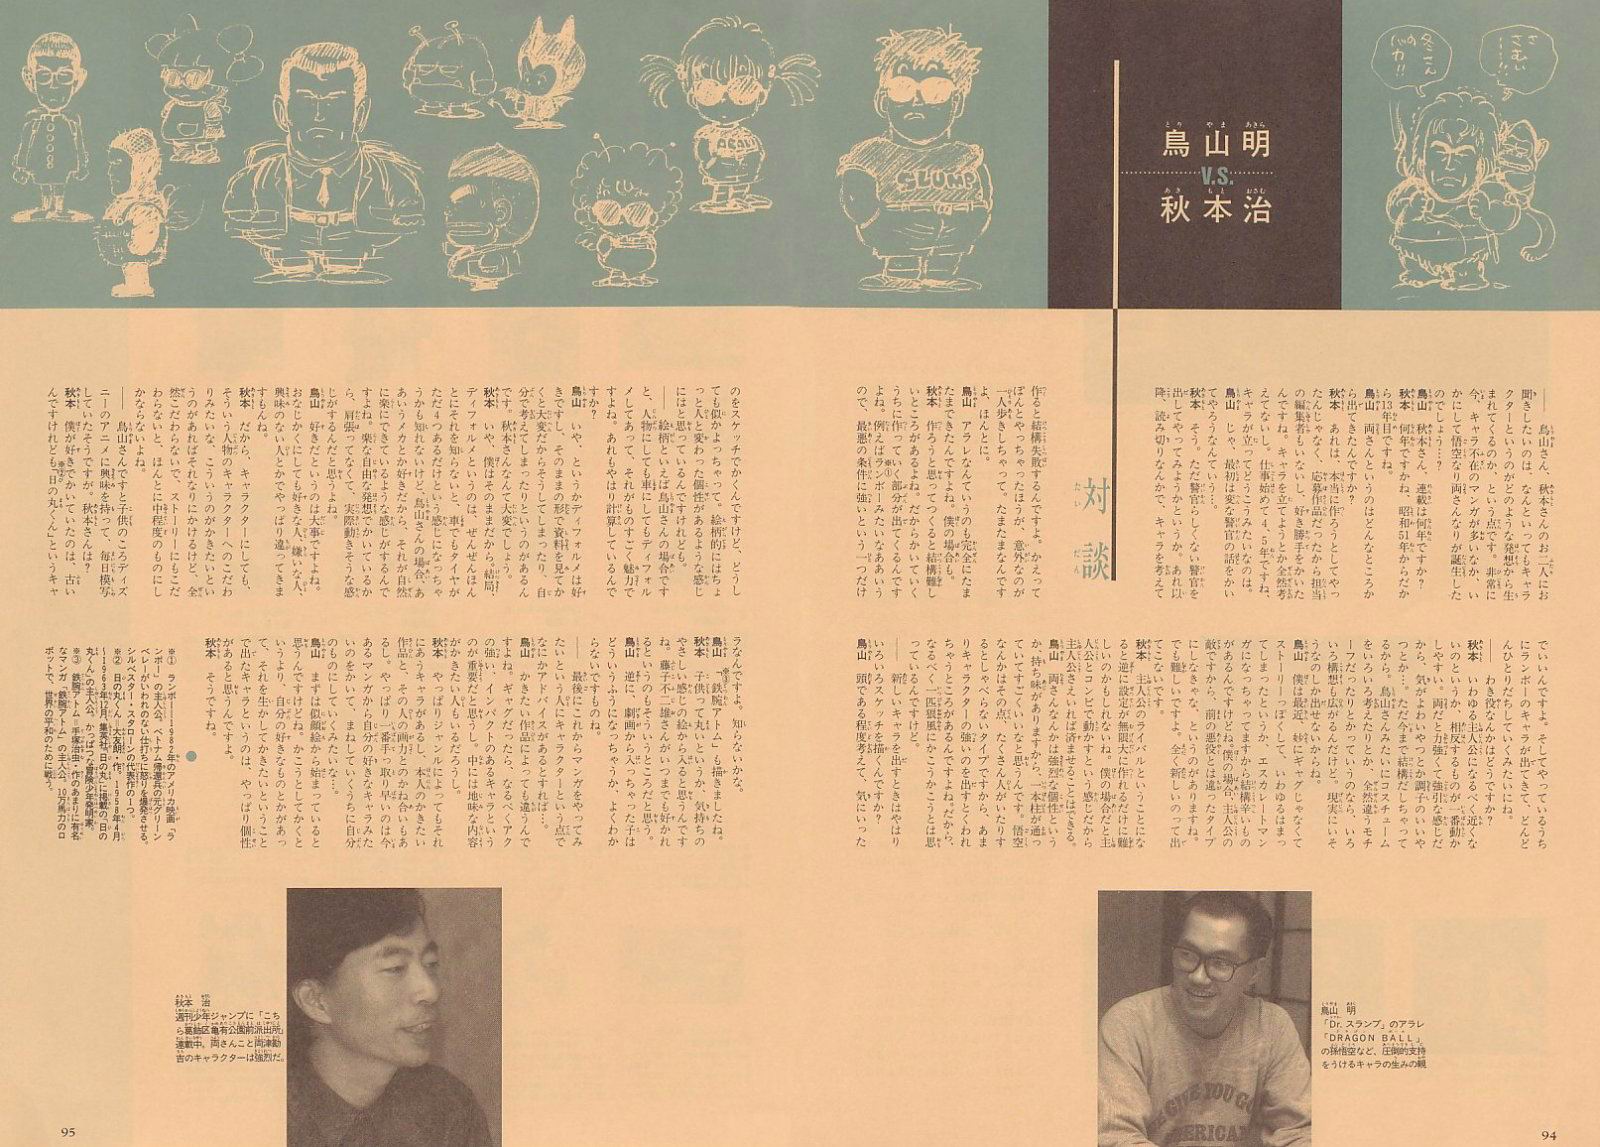 さむい
冬さん
バリの
力!!
鳥山明
V.S.
秋本治
対談
── 鳥山さん、秋本さんのお二人にお
聞きしたいのは、なんといってもキャラ
クターというのがどのような発想から生
まれてくるのか、という点です。非常に
今、キャラ不在のマンガが多いなか、い
かにして悟空なり両さんなりが誕生した
のでしょう…?
鳥山 秋本さん、連載は何年ですか?
秋本 何年ですかね、昭和51年からだか
ら13年目ですね。
鳥山 両さんというのはどんなところか
ら出てきたんですか?
秋本 あれは、本当に作ろうとしてやっ
たんじゃなく、応募作品だったから担当
の編集者もいないし、好き勝手をかいた
んですね。キャラを立てようとか全然考
えてないし。仕事始めて4、5年ですね、
キャラが立ってどうこうみたいなのは。
鳥山 じゃ、最初は変な警官の話をかい
てやろうなんていう…。
秋本 そう。ただ警官らしくない警官を
出してやってみようかというか。あれ以
降、読み切りなんかで、キャラを考えて
作ると結構失敗するんですよ。かえって
ぽんとやっちゃったほうが、意外なのが
一人歩きしちゃって。たまたまなんです
よ、ほんとに。
鳥山 アラレなんていうのも完全にたま
たまできたんですよね。僕の場合も。
秋本 作ろうと思ってつくると結構難し
いところがあるよね。だからかいていく
うちに作っていく部分が出てくるんです
よね。例えばランボーみたいなああいう
ので、最悪の条件に強いという一つだけ
でいいんですよ。そしてやっているうち
にランボーのキャラが出てきて、どんど
んひとりだちしていくみたいにね。
── わき役なんかはどうですか?
秋本 いわゆる主人公になるべく近くな
いのというか、相反するものが一番動か
しやすい。両だと力強くて強引な感じだ
から、気がよわいやつとか調子のいいや
つとか今まで…。ただ今まで結構だしちゃって
るから。鳥山さんみたいにコスチューム
をいろいろ考えたりとか、全然違うモチ
ーフだったりとかっていうのなら、いろ
いろ構想も広がるんだけど。現実にいそ
うなのしか出せないからね。
鳥山 僕は最近、妙にギャグじゃなくて
ストーリーっぽくして、いわゆるはまっ
てしまったというか、エスカレートマン
ガになっちゃってますから結構辛いもの
があるんですけどね。僕の場合、主人公の
敵ですから、前の悪役とは違ったタイプ
にしなきゃな、というのがありますね。
でも難しいですよ。全く新しいのって出
てこないです。
秋本 主人公のライバルということにな
ると逆に設定が無限大に作れるだけに難
しいのかもしれないね。僕の場合だと主
人公とコンビで動かすという感じだから。
主人公さえいれば済ませることはできる。
鳥山 両さんなんかは強烈な個性という
か、持ち味がありますから、一本柱が通っ
ていてすごくいいなと思うんです。悟空
なんかはその点、たくさん人がいたりす
るとしゃべらないタイプですから、あま
りキャラクターの強いのを出すとくわれ
ちゃうところがあるんですよね。だから、
なるべく一匹狼風にかこうかことは思
っているんですけど。
── 新しいキャラを出すときはやはり
いろいろスケッチを描くんですか?
鳥山 頭である程度考えて、気にいった
鳥山 明
「Dr. スランプ」のアラレ
「DRAGON BALL」
の孫悟空など、圧倒的支持
をうけるキャラの生みの親
94
のをスケッチでかくんですけど、どうし
ても似かよっちゃって。絵柄的にはちょ
っと人と変わった個性があるような感じ
にはと思っているんですけれども。
── 絵柄といえば鳥山さんの場合です
と、人物にしても車にしてもディフォル
メしてあって、それがものすごく魅力で
すよね。あれもやはり計算しているんで
すか?
鳥山 いや、というかディフォルメは好
きですし、そのままの形で資料を見てか
くと大変だからそうしてしまったり、自
分で考えてしまったりというのがあるん
です。秋本さんなんて大変でしょう。
秋本 いや、僕はそのままだから。結局、
ディフォルメというのは、ぜんぜんほん
とにそれを知らないと、車でもタイヤが
ただ4つあるだけという感じになっちゃ
うかも知れないけど、鳥山さんの場合、あ
あいうメカとか好きだから、それが自然
に楽にできているような感じがするんで
すよね。楽な自由な発想でかいている
ら、肩張ってなくて、実際動きそうな感
じがするんだと思うよね。
鳥山 好きだというのは大事ですよね。
おなじかくにしても好きな人、嫌いな人、
興味のない人とかでやっぱり違ってきま
すもんね。
秋本 だから、キャラクターにしても、
そういう人物のキャラクターへのこだわ
りみたいな、こういうのがかきたいとい
うのがあればそれなりにかけるけど、全
然こだわらないで、ストーリーにもこだ
わらないと、ほんとに中程度のものにし
かならないよね。
── 鳥山さんですと子供のころディズ
ニーのアニメに興味を持って、毎日模写
していたそうですが。秋本さんは?
秋本 僕が好きでかいていたのは、古い
んですけれども「日の丸くん」というキャ
ラなんですよ。知らないかな。
鳥山 「鉄腕アトム」も描きましたね。
秋本 子供って丸いというか、気持ちの
やさしい感じの絵から入ると思うんです
ね。藤子不二雄さんがいつまでも好かれ
るというのもそういうところだと思う。
鳥山 逆に、劇画から入っちゃった子は
どういうふうになっちゃうか、よくわか
らないですものね。
── 最後にこれからマンガをやってみ
たいという人にキャラクターという点で
なにかアドバイスがあるとすれば…
鳥山 かきたい作品によっても違うんで
すよね。ギャグだったら、なるべくアク
の強い、インパクトのあるキャラという
のが重要だと思うし。中には地味な内容
がかきたい人もいるだろうし。
秋本 やっぱりジャンプによってもそれ
にあうキャラがあるし、本人のかきたい
作品と、その人の画力とのかね合いもあ
るし。やっぱり一番手っ取り早いのは今
あるマンガから自分の好きなキャラみた
いのをかいて、まねしていくうちに自分
のものにしていくみたいな…。
鳥山 まずは似顔絵から始まっていると
思うんですけどね。かこうとしてかくと
いうより、自分が好きなものとかがあっ
て、それを生かしてかきたいということ
で出たキャラというのは、やっぱり個性
があると思うんですよ。
秋本 そうですね。
※① ランボー＝1982年のアメリカ映画「ラ
ンボー」の主人公。ベトナム帰還兵の元グリーン
ベレーがいわれのない仕打ちに怒りを爆発させる。
シルベスター・スタローンの代表作の1つ。
※② 日の丸くん＝大友朗・作。1958年4月
～1963年12月、集英社「日の丸」に掲載の、「日の
丸くん」の主人公。かっぱつな冒険少年発明家。
※③ 鉄腕アトム＝手塚治虫・作のあまりに有名
なマンガ「鉄腕アトム」の主人公。10万馬力のロ
ボットで、世界の平和のために戦う。
秋本 治
週刊少年ジャンプに「こち
ら葛飾区亀有公園前派出所」
連載中。両さんこと両津勘
吉のキャラクターは強烈だ。
95
SLUMP